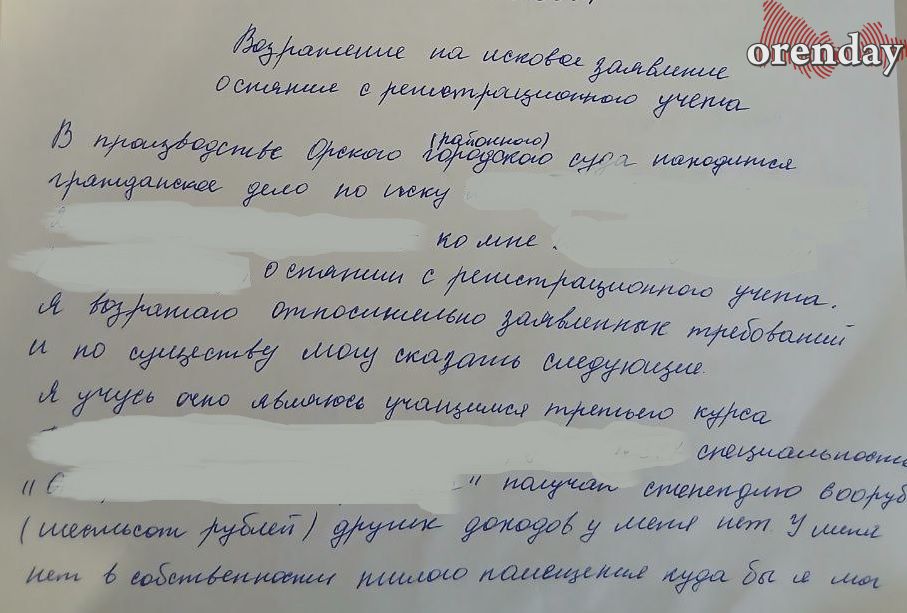 orenday
Возражение на исковое заявление
о снятие с регистрационного учета
(районного)
В производстве Орского городского суда находится
гражданское дело по иску
ко мне
о снятии с регистрационного учета.
Я возражаю относительно заявленных требований
и по существу могу сказать следующие.
Я учусь очно являюсь учащимся третьего курса
специальность
" С " получаю стипендию
(шестьсот рублей) других доходов у меня нет. У меня
нет в собственности жилого помещения куда бы я мог